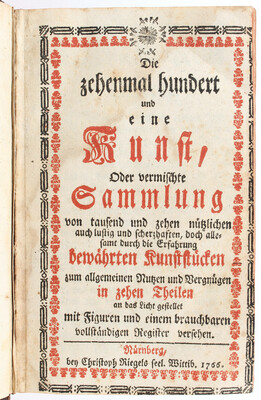 Die
zehenmal hundert
und
eine
Kunst,
Oder vermischte
Sammlung
von tausend und zehen nützlichen
auch lustig und scherzhaften, doch alle-
samt durch die Erfahrung
bewährten Kunststücken
zum allgemeinen Nutzen und Vergnügen
in zehen Theilen
an das Licht gestellet
mit Figuren und einem brauchbaren
vollständigen Register versehen.
Nürnberg,
bey Christoph Riegels seel. Wittib. 1766.